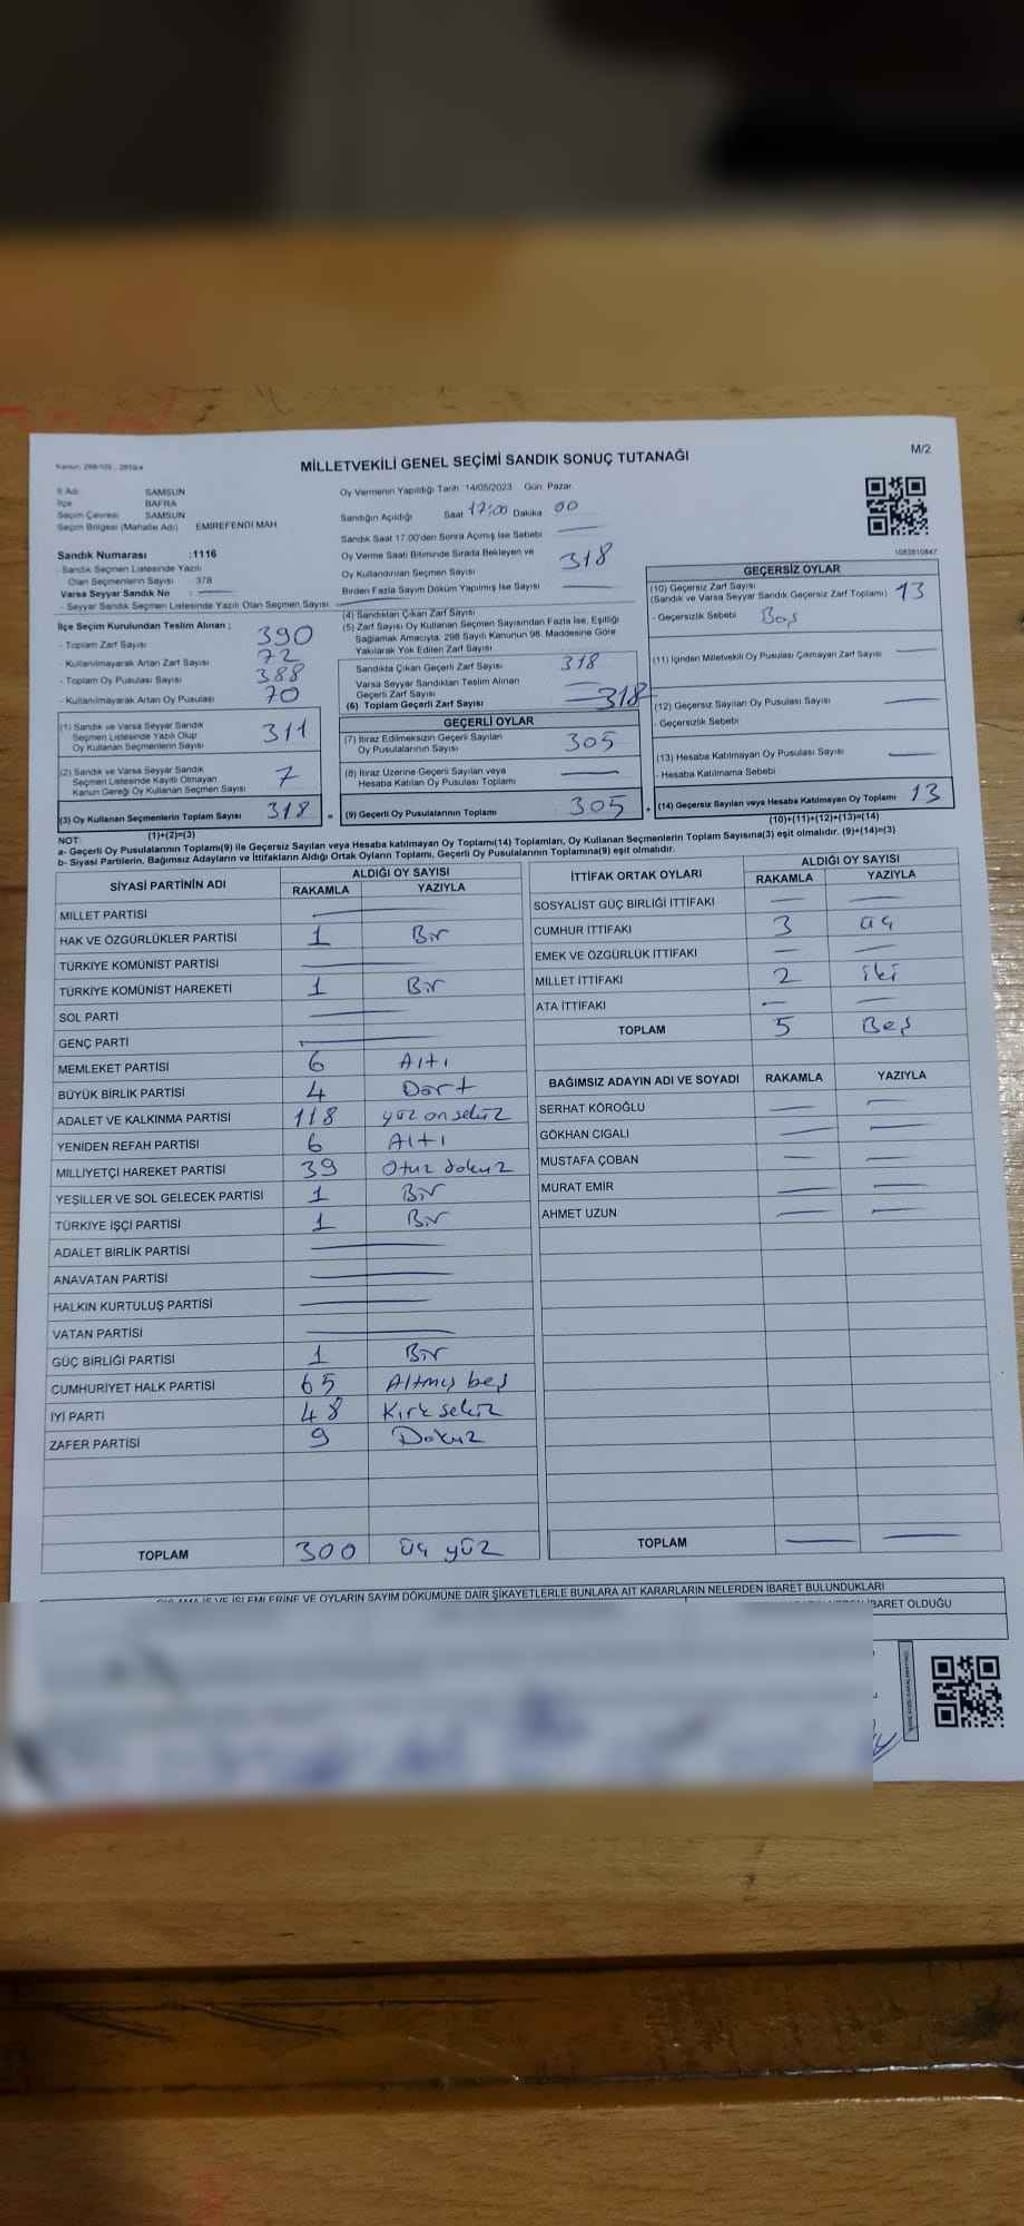 MİLLETVEKİLİ GENEL SEÇİMİ SANDIK SONUÇ TUTANAĞI
M/2
İl Adı SAMSUN
İlçe BAFRA
Seçim Çevresi SAMSUN
Seçim Bölgesi (Mahalle Adı) EMİREFENDİ MAH
Oy Vermenin Yapıldığı Tarih 14/05/2023 Gün: Pazar
Sandığın Açıldığı Saat 17:00 Dakika 00
Sandık Saat 17.00'den Sonra Açılmış İse Sebebi
Oy Verme Saati Bitiminde Sırada Bekleyen ve
Oy Kullandırılan Seçmen Sayısı 318
Birden Fazla Sayım Döküm Yapılmış İse Sayısı
Sandık Numarası :1116
Sandık Seçmen Listesinde Yazılı
Olan Seçmenlerin Sayısı 378
Varsa Seyyar Sandık No :
- Seyyar Sandık Seçmen Listesinde Yazılı Olan Seçmen Sayısı
İlçe Seçim Kurulundan Teslim Alınan :
- Toplam Zarf Sayısı 390
- Kullanılmayarak Artan Zarf Sayısı 72
- Toplam Oy Pusulası Sayısı 388
- Kullanılmayarak Artan Oy Pusulası 70
(1) Sandık ve Varsa Seyyar Sandık
Seçmen Listesinde Yazılı Olup
Oy Kullanan Seçmenlerin Sayısı 311
(2) Sandık ve Varsa Seyyar Sandık
Seçmen Listesinde Kayıtlı Olmayan
Kanun Gereği Oy Kullanan Seçmen Sayısı 7
(3) Oy Kullanan Seçmenlerin Toplam Sayısı 318
(1)+(2)=(3)
(4) Sandıktan Çıkan Zarf Sayısı
(5) Zarf Sayısı Oy Kullanan Seçmen Sayısından Fazla İse, Eşitliği
Sağlamak Amacıyla, 298 Sayılı Kanunun 98. Maddesine Göre
Yakılarak Yok Edilen Zarf Sayısı
Sandıkta Çıkan Geçerli Zarf Sayısı 318
Varsa Seyyar Sandıktan Teslim Alınan
Geçerli Zarf Sayısı
(6) Toplam Geçerli Zarf Sayısı 318
GEÇERLİ OYLAR
(7) İtiraz Edilmeksizin Geçerli Sayılan
Oy Pusulalarının Sayısı 305
(8) İtiraz Üzerine Geçerli Sayılan veya
Hesaba Katılan Oy Pusulası Toplamı
= (9) Geçerli Oy Pusulalarının Toplamı 305
1083810847
GEÇERSİZ OYLAR
(10) Geçersiz Zarf Sayısı
(Sandık ve Varsa Seyyar Sandık Geçersiz Zarf Toplamı) 13
- Geçersizlik Sebebi Boş
(11) İçinden Milletvekili Oy Pusulası Çıkmayan Zarf Sayısı
(12) Geçersiz Sayılan Oy Pusulası Sayısı
- Geçersizlik Sebebi
(13) Hesaba Katılmayan Oy Pusulası Sayısı
- Hesaba Katılmama Sebebi
+ (14) Geçersiz Sayılan veya Hesaba Katılmayan Oy Toplamı 13
(10)+(11)+(12)+(13)=(14)
NOT:
a- Geçerli Oy Pusulalarının Toplamı(9) ile Geçersiz Sayılan veya Hesaba Katılmayan Oy Toplamı(14) Toplamları, Oy Kullanan Seçmenlerin Toplam Sayısına(3) eşit olmalıdır. (9)+(14)=(3)
b- Siyasi Partilerin, Bağımsız Adayların ve İttifakların Aldığı Ortak Oyların Toplamı, Geçerli Oy Pusulalarının Toplamına(9) eşit olmalıdır.
SİYASİ PARTİNİN ADI ALDIĞI OY SAYISI
RAKAMLA YAZIYLA
MİLLET PARTİSİ
HAK VE ÖZGÜRLÜKLER PARTİSİ 1 Bir
TÜRKİYE KOMÜNİST PARTİSİ
TÜRKİYE KOMÜNİST HAREKETİ 1 Bir
SOL PARTİ
GENÇ PARTİ
MEMLEKET PARTİSİ 6 Altı
BÜYÜK BİRLİK PARTİSİ 4 Dört
ADALET VE KALKINMA PARTİSİ 118 yüz on sekiz
YENİDEN REFAH PARTİSİ 6 Altı
MİLLİYETÇİ HAREKET PARTİSİ 39 Otuz dokuz
YEŞİLLER VE SOL GELECEK PARTİSİ 1 Bir
TÜRKİYE İŞÇİ PARTİSİ 1 Bir
ADALET BİRLİK PARTİSİ
ANAVATAN PARTİSİ
HALKIN KURTULUŞ PARTİSİ
VATAN PARTİSİ
GÜÇ BİRLİĞİ PARTİSİ 1 Bir
CUMHURİYET HALK PARTİSİ 65 Altmış beş
İYİ PARTİ 48 Kırk sekiz
ZAFER PARTİSİ 9 Dokuz
TOPLAM 300 üç yüz
İTTİFAK ORTAK OYLARI ALDIĞI OY SAYISI
RAKAMLA YAZIYLA
SOSYALİST GÜÇ BİRLİĞİ İTTİFAKI
CUMHUR İTTİFAKI 3 üç
EMEK VE ÖZGÜRLÜK İTTİFAKI
MİLLET İTTİFAKI 2 iki
ATA İTTİFAKI
TOPLAM 5 Beş
BAĞIMSIZ ADAYIN ADI VE SOYADI RAKAMLA YAZIYLA
SERHAT KÖROĞLU
GÖKHAN CIGALI
MUSTAFA ÇOBAN
MURAT EMİR
AHMET UZUN
TOPLAM
İŞLEMLERİNE VE OYLARIN SAYIM DÖKÜMÜNE DAİR ŞİKAYETLERLE BUNLARA AİT KARARLARIN NELERDEN İBARET BULUNDUKLARI
İBARET OLDUĞU